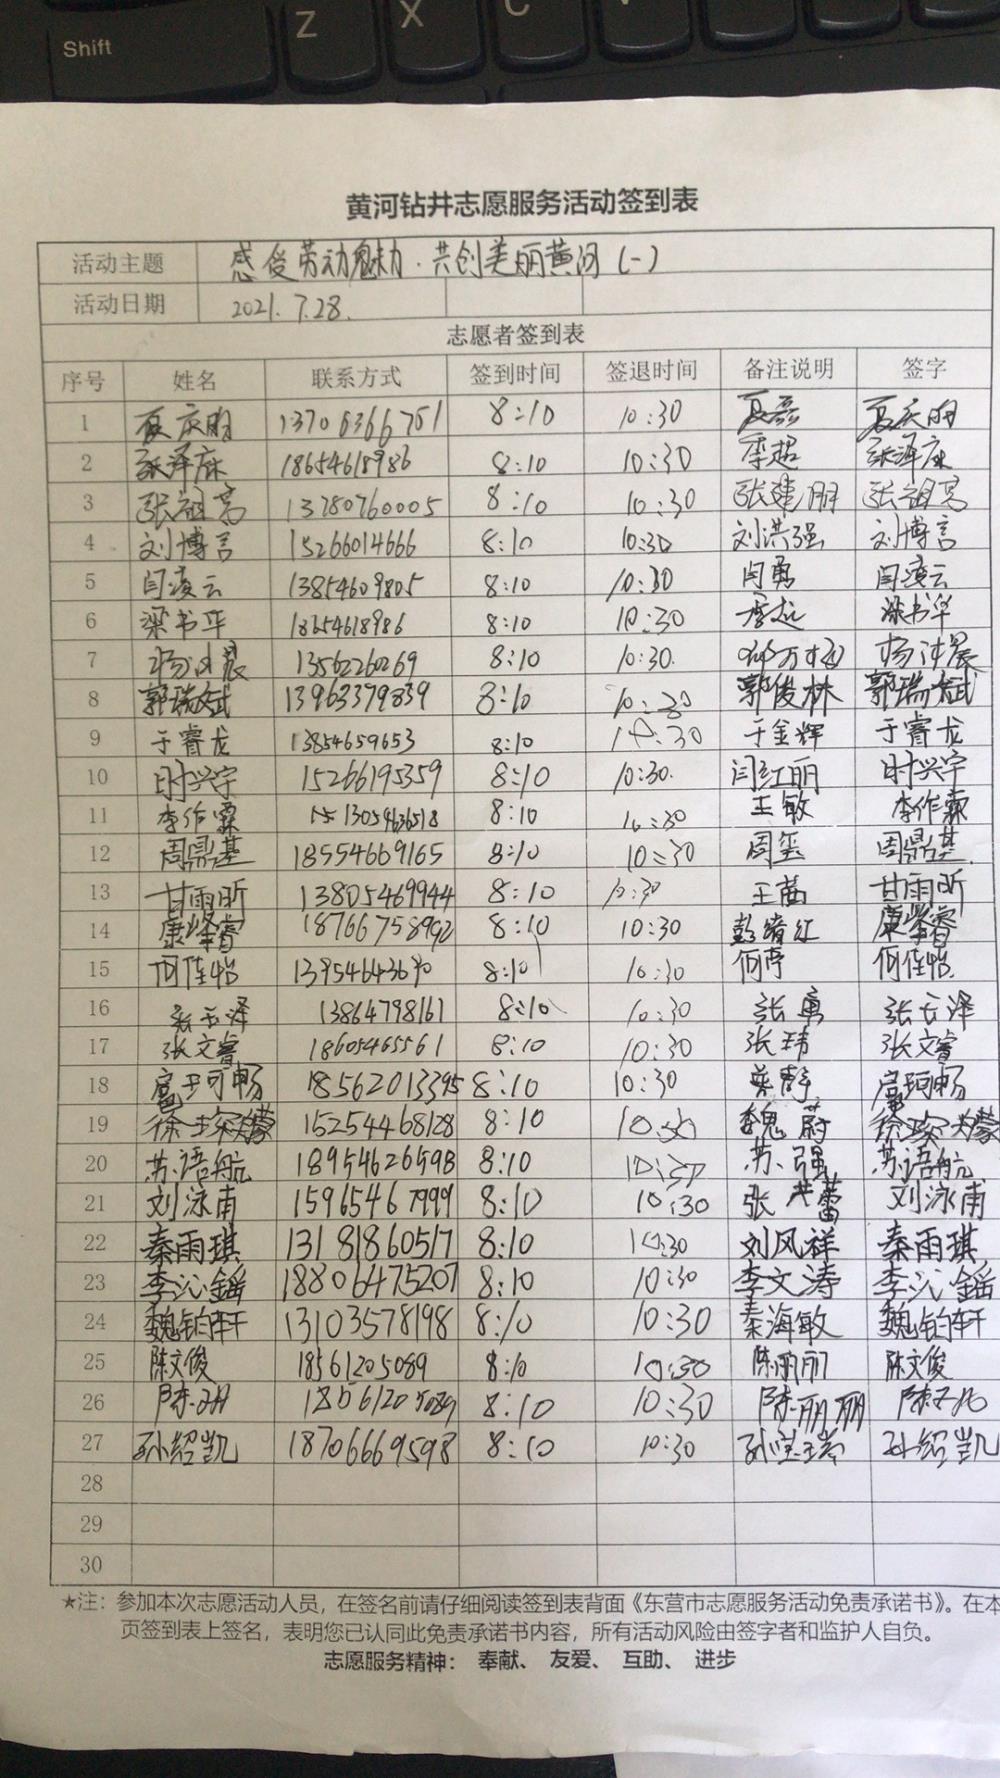 Shift
Z
X
C
黄河钻井志愿服务活动签到表
活动主题 感受劳动魅力·共创美丽黄河(一)
活动日期 2021.7.28.
志愿者签到表
序号 姓名 联系方式 签到时间 签退时间 备注说明 签字
1 夏庆明 13706366751 8:10 10:30 夏磊 夏庆明
2 张泽麻 18654618986 8:10 10:30 季超 张泽麻
3 张祖高 13780760005 8:10 10:30 张建朋 张祖高
4 刘博言 15266014666 8:10 10:30 刘洪强 刘博言
5 闫凌云 13854609805 8:10 10:30 闫勇 闫凌云
6 梁书华 18654618986 8:10 10:30 季超 梁书华
7 13562260269 8:10 10:30.
8 郭瑞斌 13963379839 8:10 10:30 郭俊林 郭瑞斌
9 于睿龙 13854659653 8:10 10:30 于金辉 于睿龙
10 时兴宇 15266195359 8:10 10:30. 闫红丽 时兴宇
11 李作霖 13054636518 8:10 10:30 王敏 李作霖
12 周鼎基 18554669165 8:10 10:30 周玺 周鼎基
13 甘雨昕 13805469944 8:10 10:30 王茜 甘雨昕
14 康峰睿 18766758992 8:10 10:30 彭绪红 康峰睿
15 何佳怡 13954643690 8:10 10:30 何亭 何佳怡
16 张玉泽 13864798161 8:10 10:30 张勇 张玉泽
17 张文睿 18605465561 8:10 10:30 张玮 张文睿
18 扈珂畅 18562013395 8:10 10:30 蔡静 扈珂畅
19 15254468128 8:10 10:30 魏蔚
20 苏语航 18954626598 8:10 10:30 苏强 苏语航
21 刘泳甫 15965467999 8:10 10:30 张芸蕾 刘泳甫
22 秦雨琪 13181860517 8:10 10:30 刘风祥 秦雨琪
23 李沁鎐 18806475207 8:10 10:30 李文涛 李沁鎐
24 魏铂轩 13103578198 8:10 10:30 秦海敏 魏铂轩
25 陈文俊 18561205089 8:10 10:30 陈丽丽 陈文俊
26 18561205089 8:10 10:30 陈丽丽
27 孙绍凯 18706669598 8:10 10:30 孙宝瑞 孙绍凯
28
29
30
★注：参加本次志愿活动人员，在签名前请仔细阅读签到表背面《东营市志愿服务活动免责承诺书》。在本
页签到表上签名，表明您已认同此免责承诺书内容，所有活动风险由签字者和监护人自负。
志愿服务精神： 奉献、 友爱、 互助、 进步